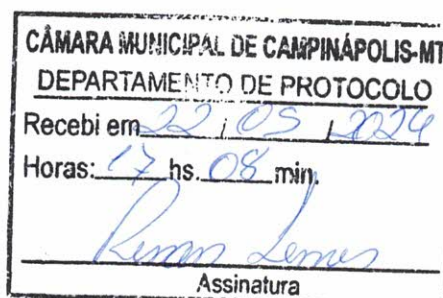 CÂMARA MUNICIPAL DE CAMPINÁPOLIS-MT
DEPARTAMENTO DE PROTOCOLO
Recebi em 22 / 05 / 2024
Horas: 17 hs. 08 min.
Lemes
Assinatura